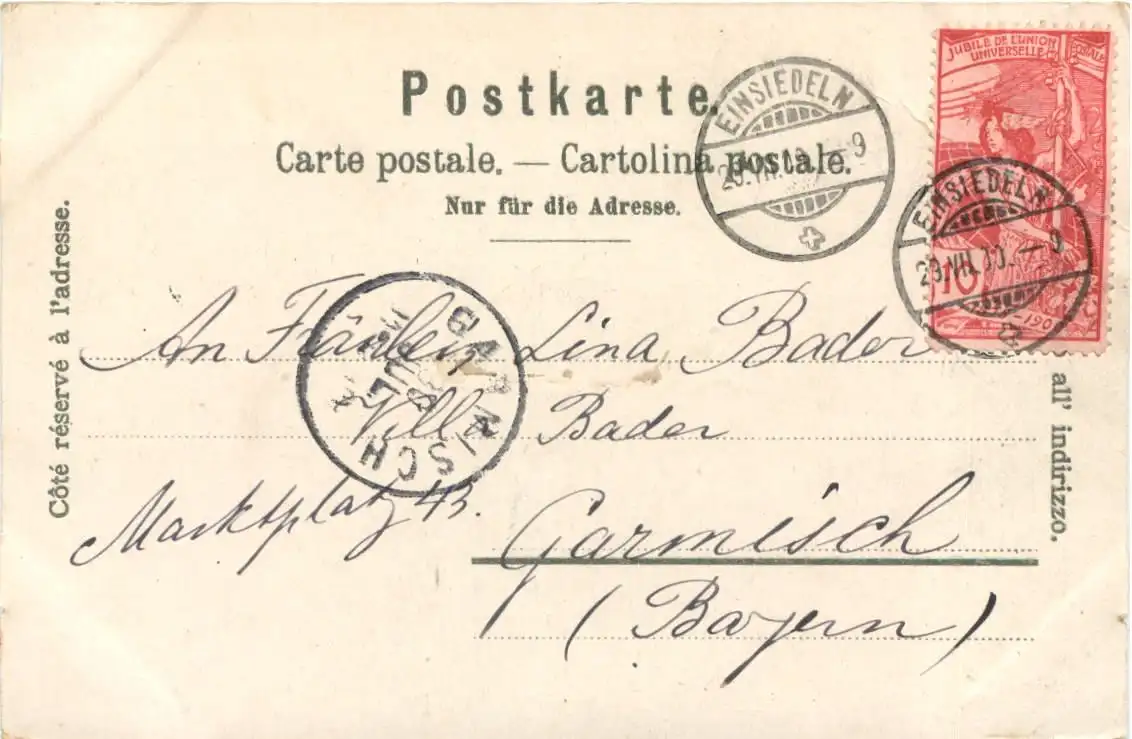 Postkarte.
Carte postale. — Cartolina postale.
Nur für die Adresse.
Côté réservé à l'adresse.
all' indirizzo.
JUBILÉ DE L'UNION POSTALE
UNIVERSELLE
10
EINSIEDELN
VII.00. — 9
EINSIEDELN
29.VII.00. — 9
GARMISCH
JUL
An Fräulein Lina Bader
Villa Bader
Marktplatz 43.
Garmisch
(Bayern)